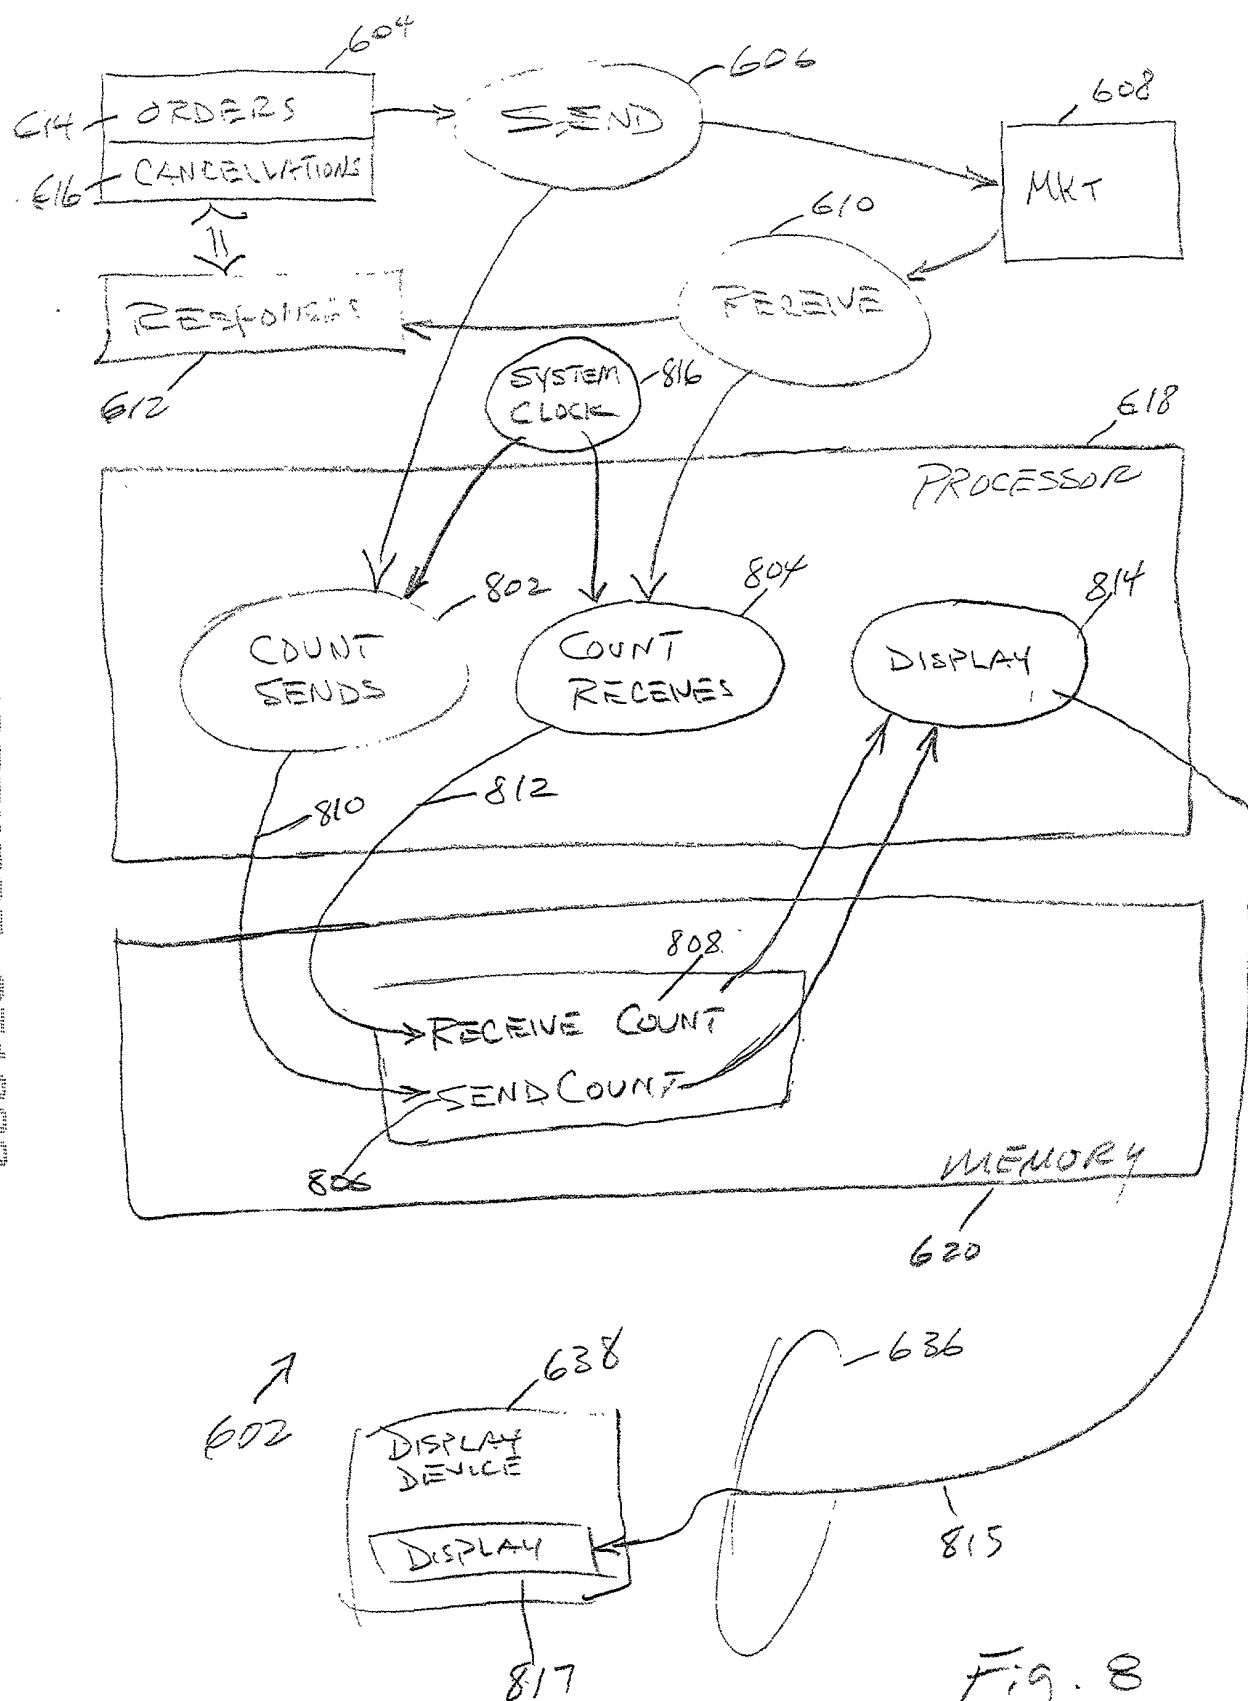 604
606
608
614
ORDERS
SEND
616
CANCELLATIONS
MKT
610
RESPONSES
RECEIVE
612
SYSTEM
CLOCK
816
618
PROCESSOR
802
804
814
COUNT
SENDS
COUNT
RECEIVES
DISPLAY
810
812
808
RECEIVE COUNT
SEND COUNT
806
MEMORY
620
602
638
636
DISPLAY
DEVICE
DISPLAY
815
817
Fig. 8